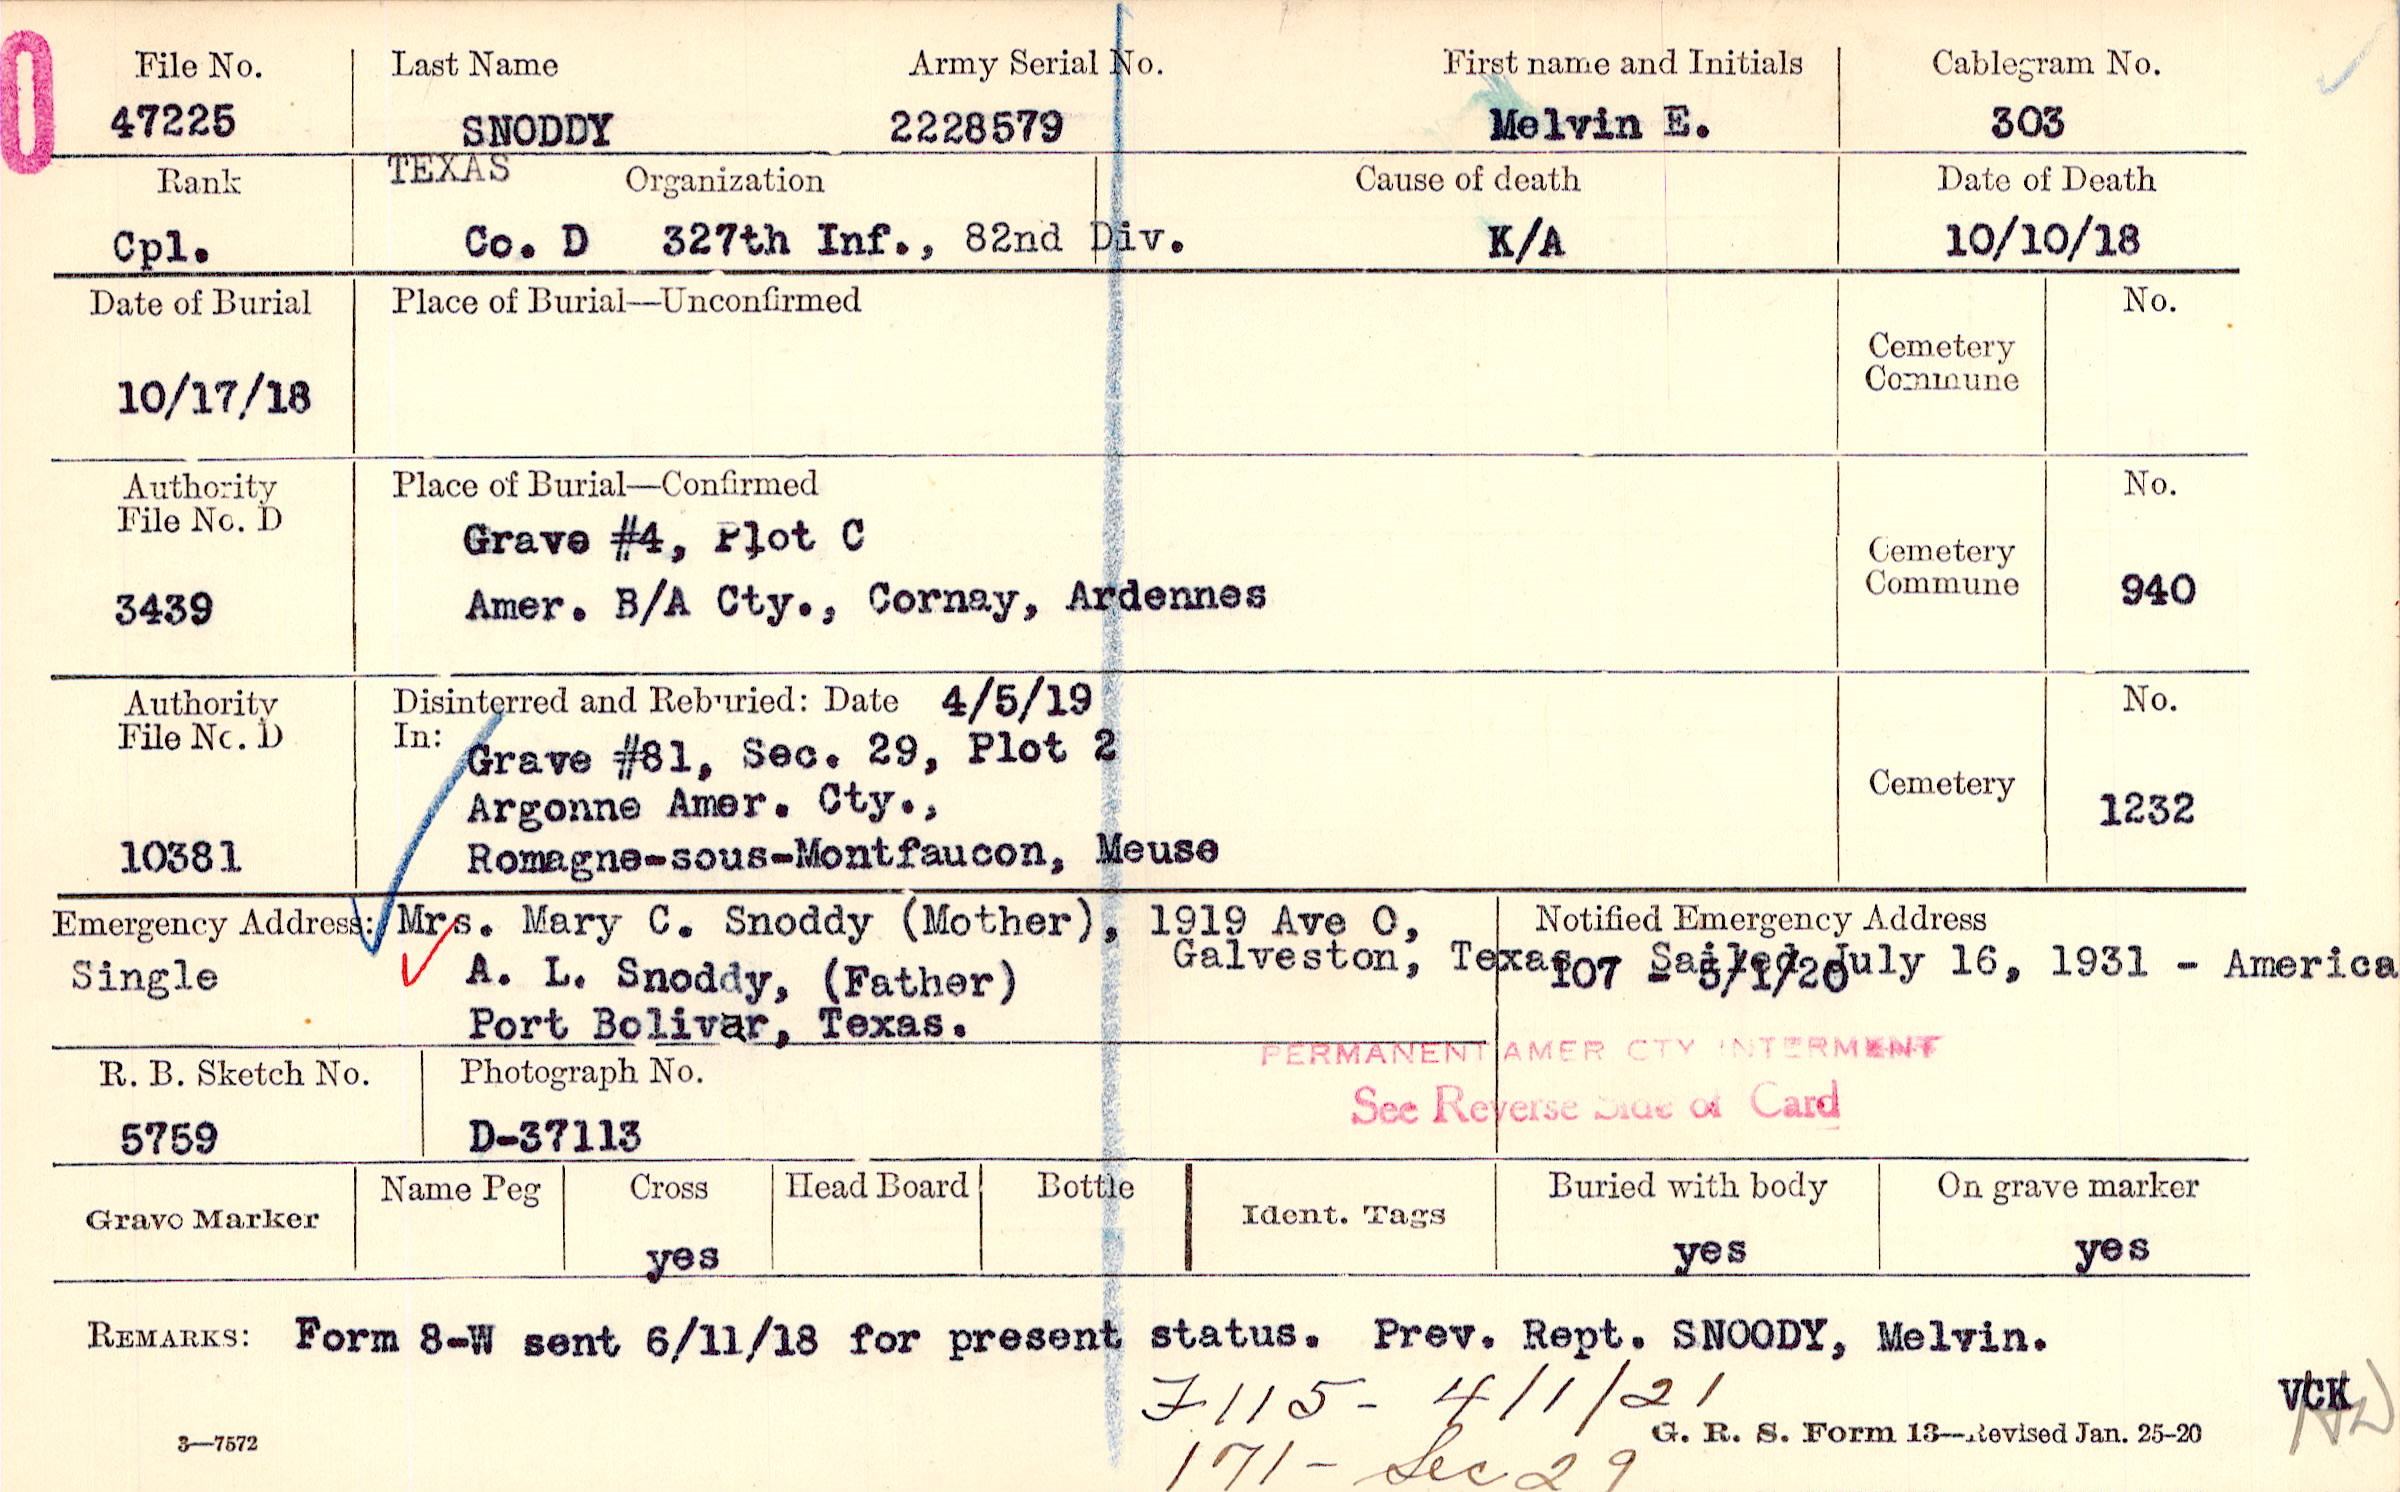 File No. Last Name Army Serial No. First name and Initials Cablegram No.
47225 SNODDY 2228579 Melvin E. 303
Rank TEXAS Organization Cause of death Date of Death
Cpl. Co. D 327th Inf., 82nd Div. K/A 10/10/18
Date of Burial Place of Burial—Unconfirmed No.
Cemetery
Commune
10/17/18
Authority Place of Burial—Confirmed No.
File No. D
Grave #4, Plot C
Cemetery
Commune
3439 Amer. B/A Cty., Cornay, Ardennes 940
Authority Disinterred and Reburied: Date 4/5/19 No.
File No. D In:
Grave #81, Sec. 29, Plot 2
Cemetery
Argonne Amer. Cty., 1232
10381 Romagne-sous-Montfaucon, Meuse
Emergency Address: Mrs. Mary C. Snoddy (Mother), 1919 Ave O, Notified Emergency Address
Galveston, Texas Sailed July 16, 1931 - America
Single A. L. Snoddy, (Father) 107 - 5/1/20
Port Bolivar, Texas.
PERMANENT AMER CTY INTERMENT
R. B. Sketch No. Photograph No.
See Reverse Side of Card
5759 D-37113
Name Peg Cross Head Board Bottle Buried with body On grave marker
Grave Marker Ident. Tags
yes yes yes
REMARKS: Form 8-W sent 6/11/18 for present status. Prev. Rept. SNOODY, Melvin.
F115- 4/1/21
VCK
3—7572 G. R. S. Form 13—Revised Jan. 25-20
171- Sec 29